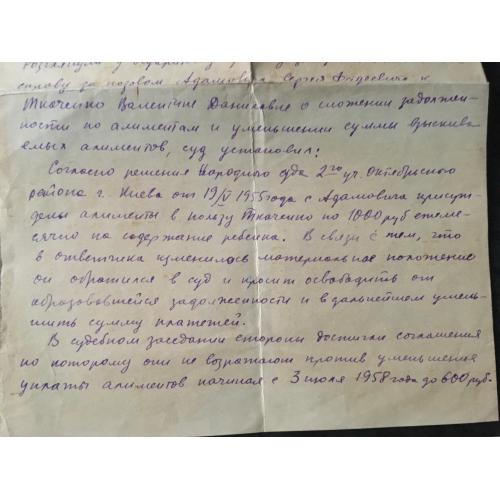 розглянув у
справу за позовом Адамовича Сергея к
Ткаченко Валентине Даниловне о сложении задолжен-
ности по алиментам и уменьшении суммы взыскива-
емых алиментов, суд установил:
Согласно решения Народного суда 2го уч. Октябрьского
района г. Киева от 19/V 1955 года с Адамовича присуж-
дены алименты в пользу Ткаченко по 1000 руб ежеме-
сячно на содержание ребенка. В связи с тем, что
в ответчика изменилось материальное положение
он обратился в суд и просит освободить от
образовавшейся задолженности и в дальнейшем умень-
шить сумму платежей.
В судебном заседании стороны достигли соглашения
по которому они не возражают против уменьшения
уплаты алиментов начиная с 3 июля 1958 года до 600 руб.